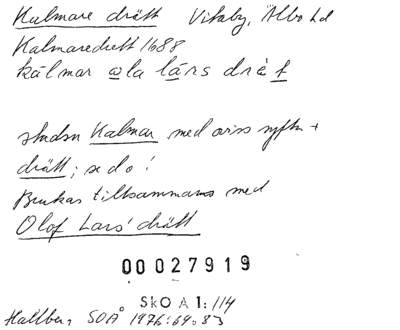 Kalmare drätt Vitaby, Albo hd
Kalmaredrett 1688
kàlmar ola lárs drèt
Kalmar med
drätt; se do!
Brukas tillsammans med
Olof Lars' drätt
00027919
SkO A 1:114
Hallberg SOÅ 1976:69.83